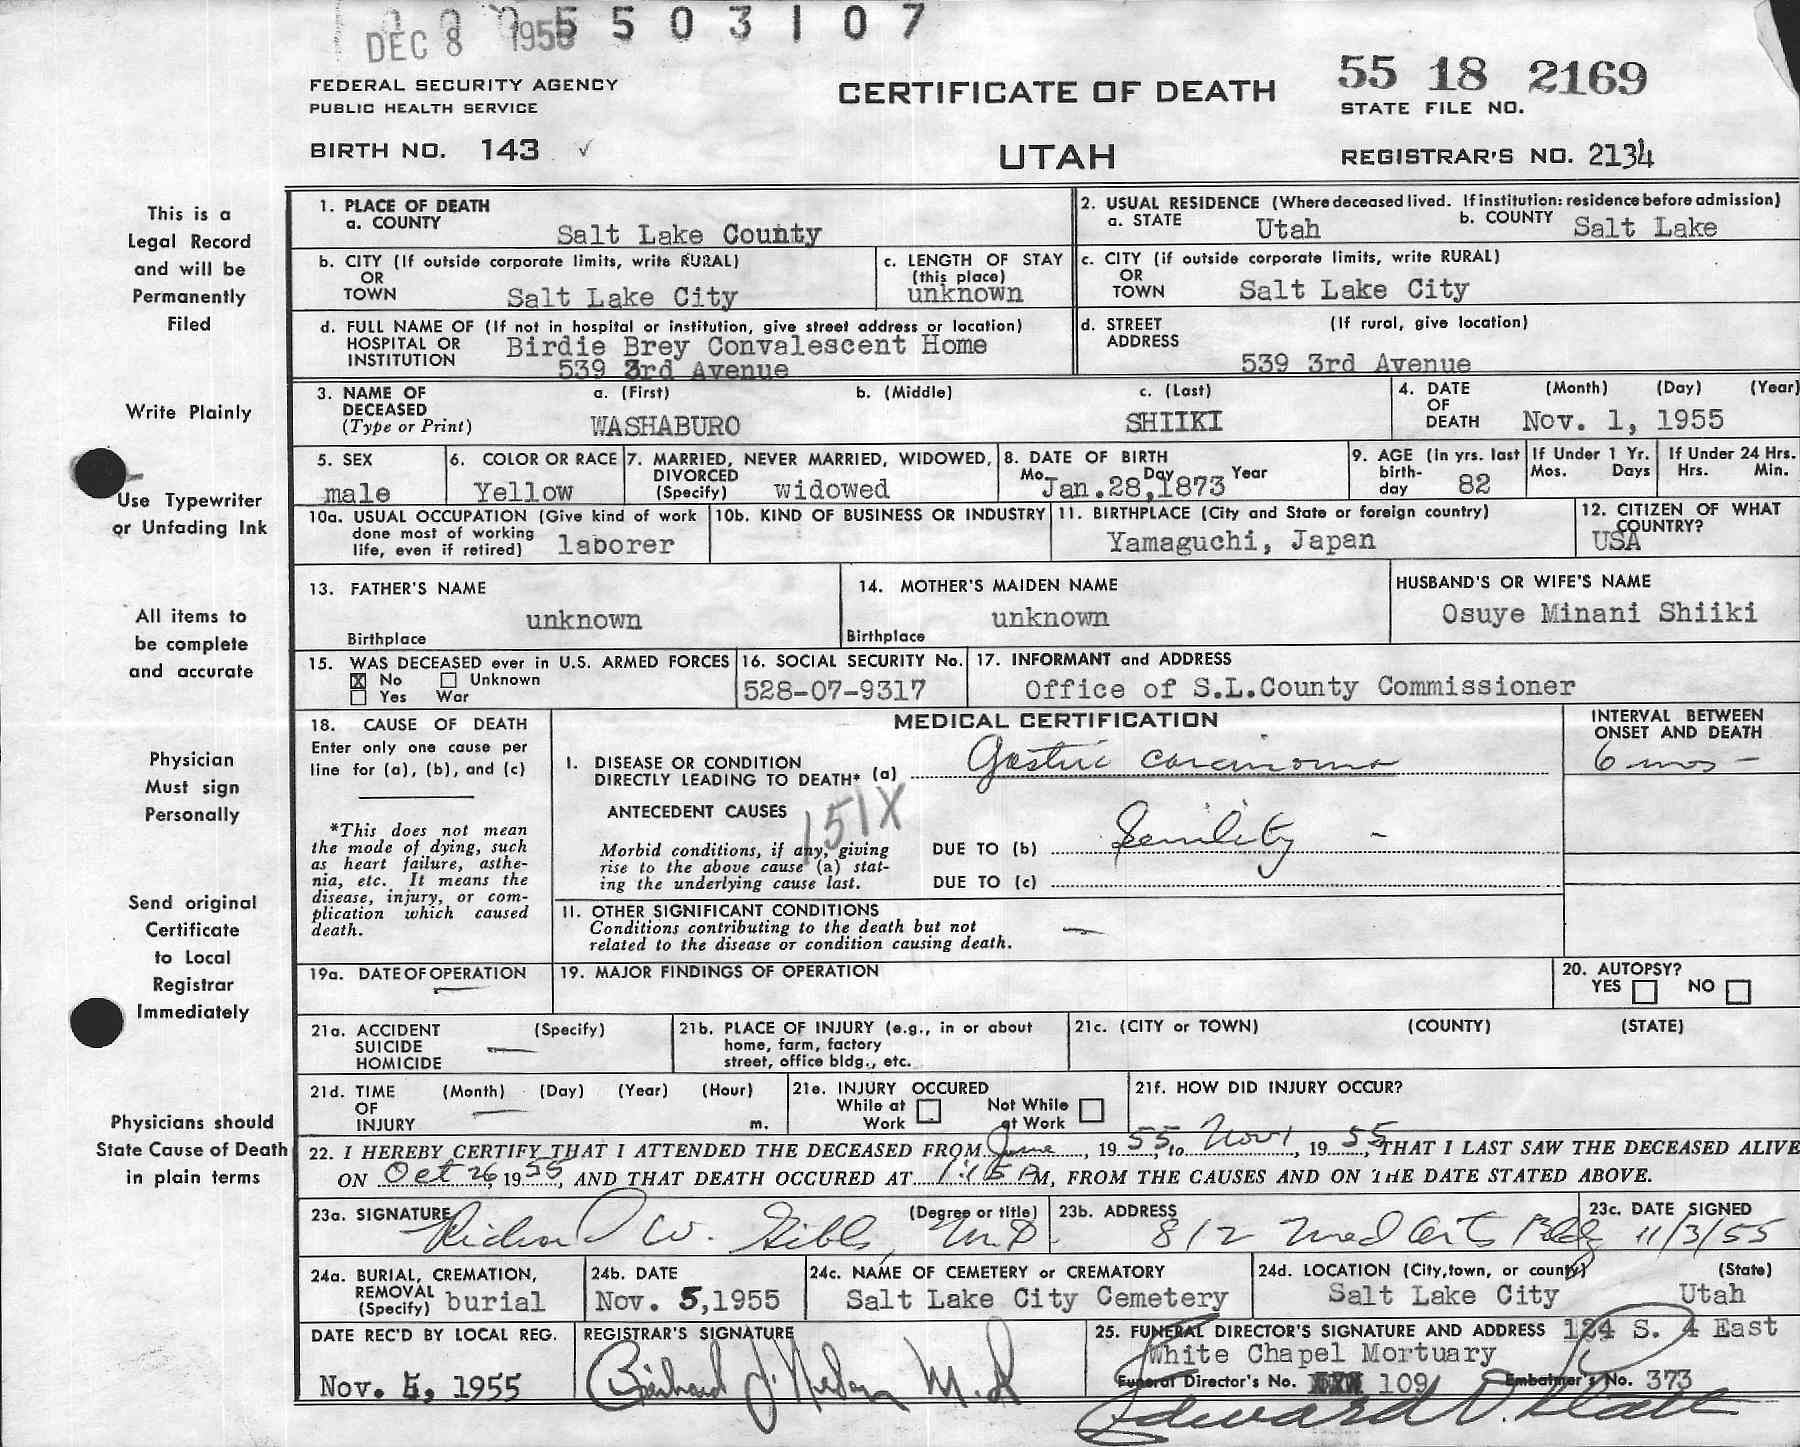 DEC 8 1955 5 5 0 3 1 0 7
FEDERAL SECURITY AGENCY
PUBLIC HEALTH SERVICE
CERTIFICATE OF DEATH
55 18 2169
STATE FILE NO.
BIRTH NO. 143 ✓
UTAH
REGISTRAR'S NO. 2134
This is a
Legal Record
and will be
Permanently
Filed
Write Plainly
Use Typewriter
or Unfading Ink
All items to
be complete
and accurate
Physician
Must sign
Personally
Send original
Certificate
to Local
Registrar
Immediately
Physicians should
State Cause of Death
in plain terms
1. PLACE OF DEATH
a. COUNTY
Salt Lake County
2. USUAL RESIDENCE (Where deceased lived. If institution: residence before admission)
a. STATE Utah b. COUNTY Salt Lake
b. CITY (If outside corporate limits, write RURAL)
OR
TOWN Salt Lake City
c. LENGTH OF STAY
(this place)
unknown
c. CITY (if outside corporate limits, write RURAL)
OR
TOWN Salt Lake City
d. FULL NAME OF (If not in hospital or institution, give street address or location)
HOSPITAL OR
INSTITUTION
Birdie Brey Convalescent Home
539 3rd Avenue
d. STREET (If rural, give location)
ADDRESS
539 3rd Avenue
3. NAME OF
DECEASED
(Type or Print)
a. (First) b. (Middle) c. (Last)
WASHABURO SHIIKI
4. DATE (Month) (Day) (Year)
OF
DEATH Nov. 1, 1955
5. SEX
male
6. COLOR OR RACE
Yellow
7. MARRIED, NEVER MARRIED, WIDOWED,
DIVORCED
(Specify) widowed
8. DATE OF BIRTH
Mo. Day Year
Jan.28,1873
9. AGE (In yrs. last
birth-
day 82
If Under 1 Yr.
Mos. Days
If Under 24 Hrs.
Hrs. Min.
10a. USUAL OCCUPATION (Give kind of work
done most of working
life, even if retired) laborer
10b. KIND OF BUSINESS OR INDUSTRY
11. BIRTHPLACE (City and State or foreign country)
Yamaguchi, Japan
12. CITIZEN OF WHAT
COUNTRY?
USA
13. FATHER'S NAME
unknown
Birthplace
14. MOTHER'S MAIDEN NAME
unknown
Birthplace
HUSBAND'S OR WIFE'S NAME
Osuye Minani Shiiki
15. WAS DECEASED ever in U.S. ARMED FORCES
☒ No ☐ Unknown
☐ Yes War
16. SOCIAL SECURITY No.
528-07-9317
17. INFORMANT and ADDRESS
Office of S.L.County Commissioner
18. CAUSE OF DEATH
Enter only one cause per
line for (a), (b), and (c)
*This does not mean
the mode of dying, such
as heart failure, asthe-
nia, etc. It means the
disease, injury, or com-
plication which caused
death.
MEDICAL CERTIFICATION
INTERVAL BETWEEN
ONSET AND DEATH
I. DISEASE OR CONDITION
DIRECTLY LEADING TO DEATH* (a) Gastric carcinoma 6 mos -
ANTECEDENT CAUSES
151X
Morbid conditions, if any, giving
rise to the above cause (a) stat-
ing the underlying cause last.
DUE TO (b) Senility -
DUE TO (c)
II. OTHER SIGNIFICANT CONDITIONS
Conditions contributing to the death but not
related to the disease or condition causing death.
—
19a. DATE OF OPERATION
—
19. MAJOR FINDINGS OF OPERATION
20. AUTOPSY?
YES ☐ NO ☐
21a. ACCIDENT (Specify)
SUICIDE —
HOMICIDE
21b. PLACE OF INJURY (e.g., in or about
home, farm, factory
street, office bldg., etc.
21c. (CITY or TOWN) (COUNTY) (STATE)
21d. TIME (Month) (Day) (Year) (Hour)
OF —
INJURY m.
21e. INJURY OCCURED
While at ☐ Not While ☐
Work at Work
21f. HOW DID INJURY OCCUR?
22. I HEREBY CERTIFY THAT I ATTENDED THE DECEASED FROM June, 1955, to Nov 1, 1955, THAT I LAST SAW THE DECEASED ALIVE
ON Oct 26, 1955, AND THAT DEATH OCCURED AT 1:15 PM, FROM THE CAUSES AND ON THE DATE STATED ABOVE.
23a. SIGNATURE (Degree or title)
Richard W. Gibbs, M.D.
23b. ADDRESS
812 Med Arts Bldg
23c. DATE SIGNED
11/3/55
24a. BURIAL, CREMATION,
REMOVAL
(Specify) burial
24b. DATE
Nov. 5,1955
24c. NAME OF CEMETERY or CREMATORY
Salt Lake City Cemetery
24d. LOCATION (City,town, or county) (State)
Salt Lake City Utah
DATE REC'D BY LOCAL REG.
Nov. 5, 1955
REGISTRAR'S SIGNATURE
25. FUNERAL DIRECTOR'S SIGNATURE AND ADDRESS 124 S. 4 East
White Chapel Mortuary
Funeral Director's No. 109 Embalmer's No. 373